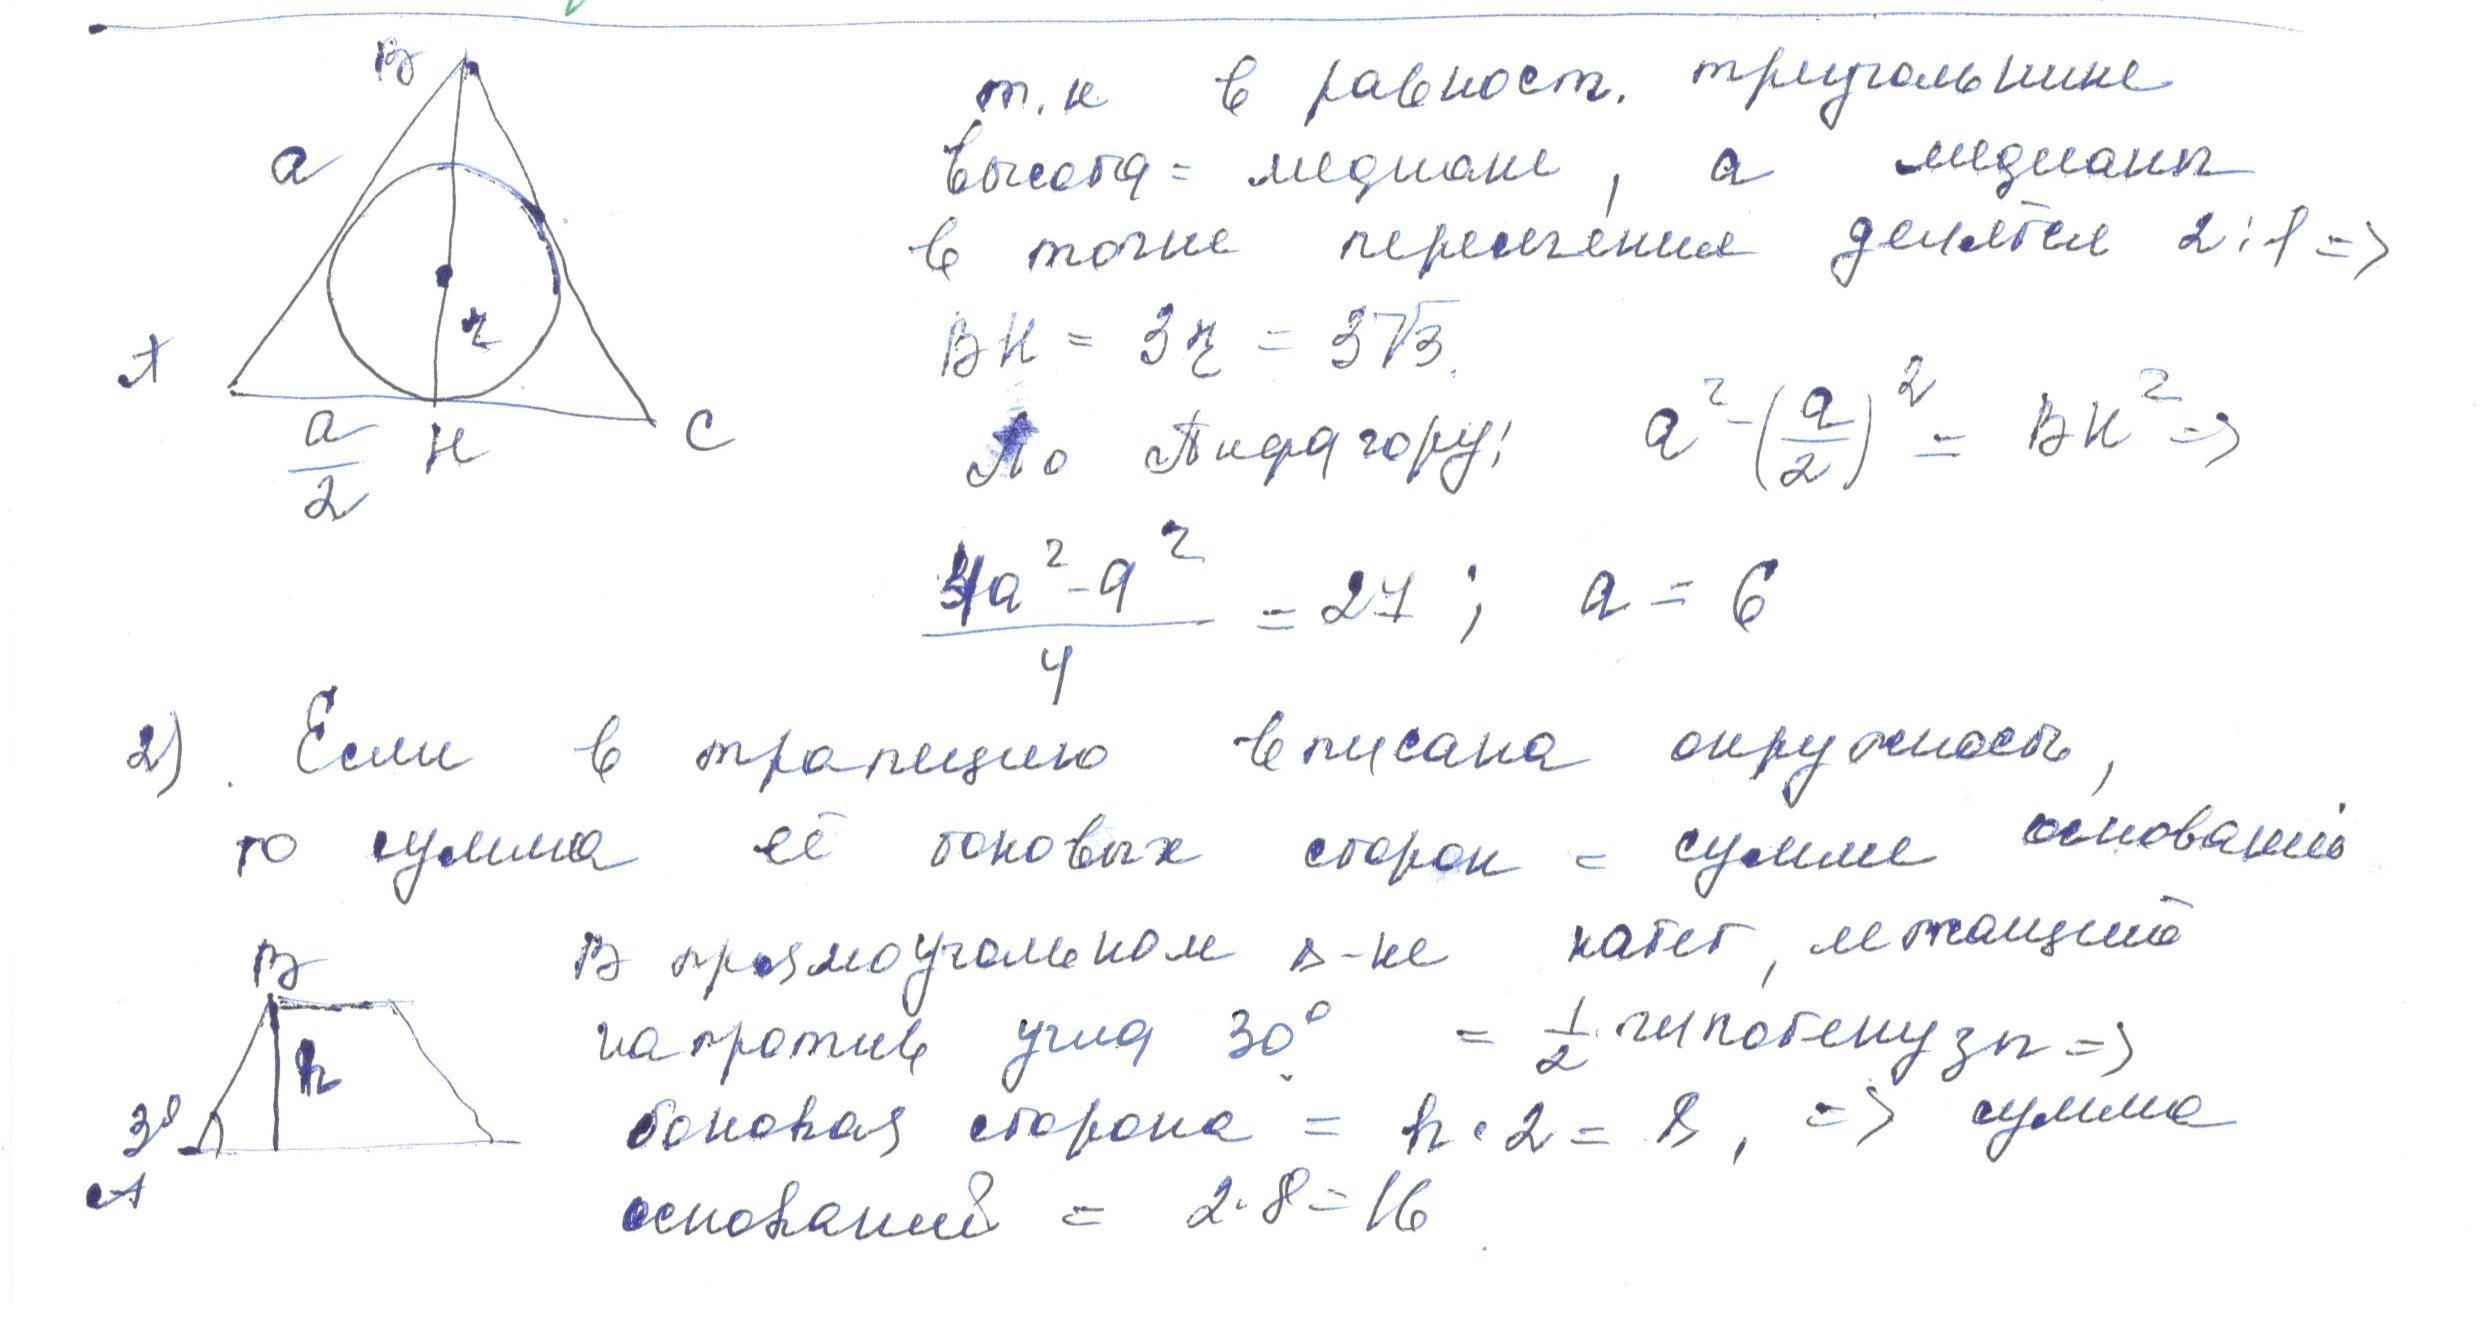 B
a
r
A
a/2 H C
т.к в равност. треугольнике
высота = медиане, а медианы
в точке пересечения делятся 2:1 =>
BH = 3r = 3√3.
По Пифагору: a² - (a/2)² = BH² =>
(4a² - a²)/4 = 27; a = 6
2). Если в трапецию вписана окружность,
то сумма её боковых сторон = сумме оснований
B
h
30
A
В прямоугольном Δ-ке катет, лежащий
напротив угла 30° = 1/2 гипотенузы =>
боковая сторона = h·2 = 8, => сумма
оснований = 2·8 = 16